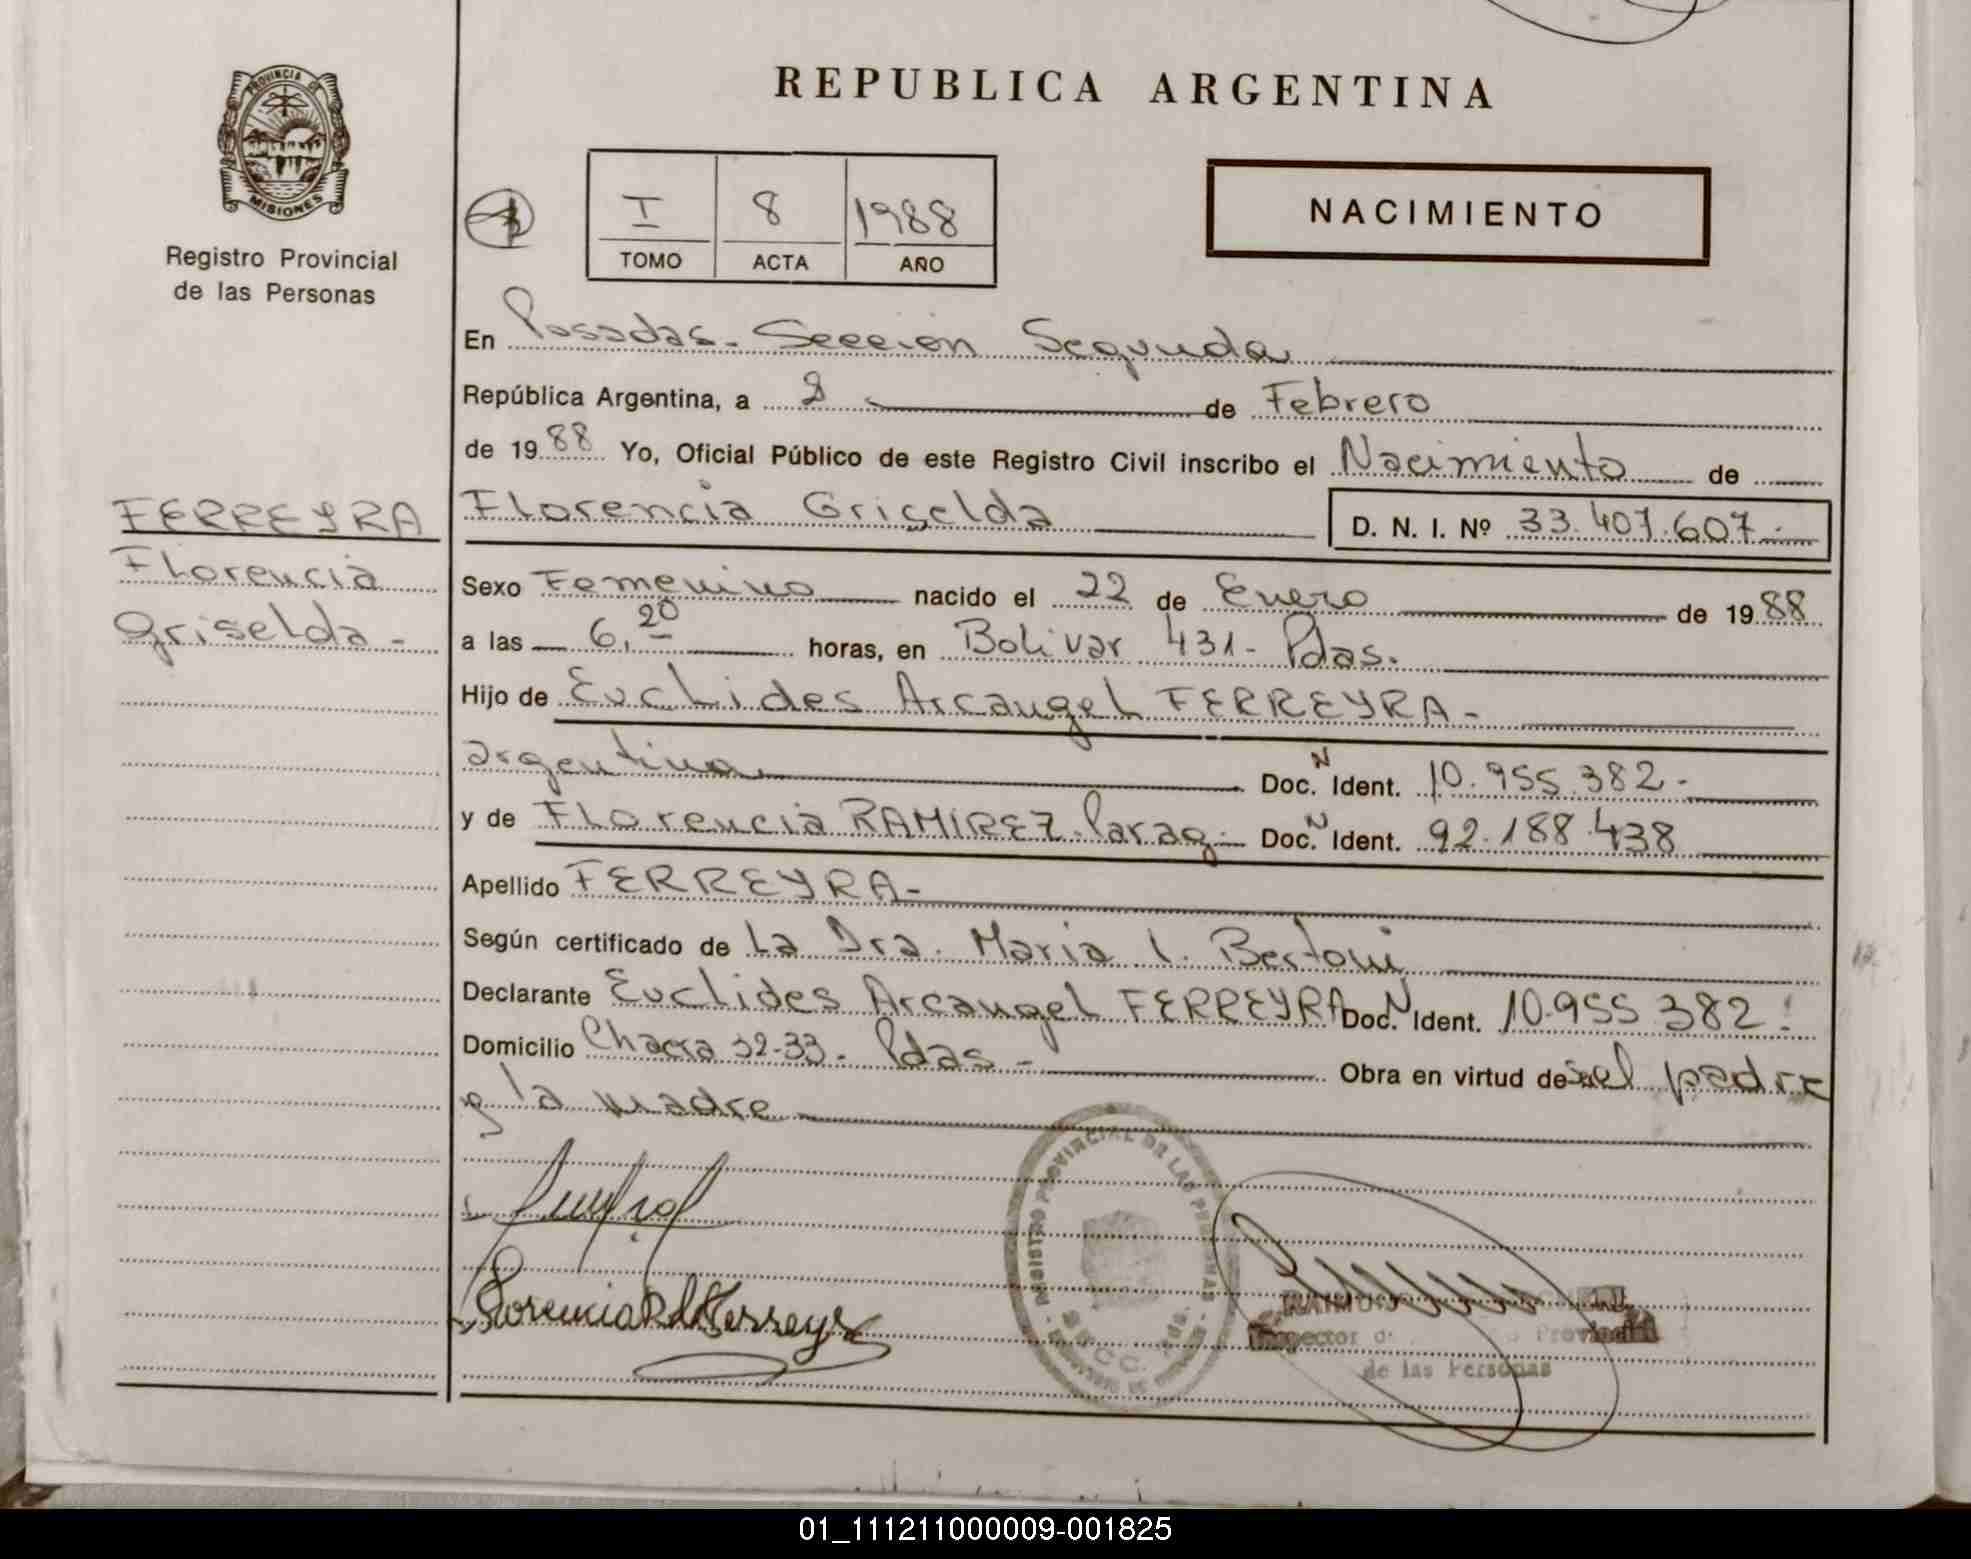 REPUBLICA ARGENTINA
PROVINCIA DE
MISIONES
Registro Provincial
de las Personas
I 8 1988
TOMO ACTA AÑO
NACIMIENTO
En Posadas - Seccion Segunda
República Argentina, a 8 de Febrero
de 1988 Yo, Oficial Público de este Registro Civil inscribo el Nacimiento de
FERREYRA
Florencia
Griselda -
Florencia Griselda D. N. I. Nº 33.407.607.-
Sexo Femenino nacido el 22 de Enero de 1988
a las 6,20 horas, en Bolivar 431 - Pdas.
Hijo de Euclides Arcangel FERREYRA -
argentina Doc. N Ident. 10.955.382 -
y de Florencia RAMIREZ. Parag - Doc. N Ident. 92.188.438
Apellido FERREYRA -
Según certificado de La Dra. Maria I. Bertoni
Declarante Euclides Arcangel FERREYRA Doc. N Ident. 10.955 382.
Domicilio Chacra 32-33 - Pdas - Obra en virtud de ser el padre
y la madre
REGISTRO PROVINCIAL DE LAS PERSONAS
de las Personas
01_111211000009-001825